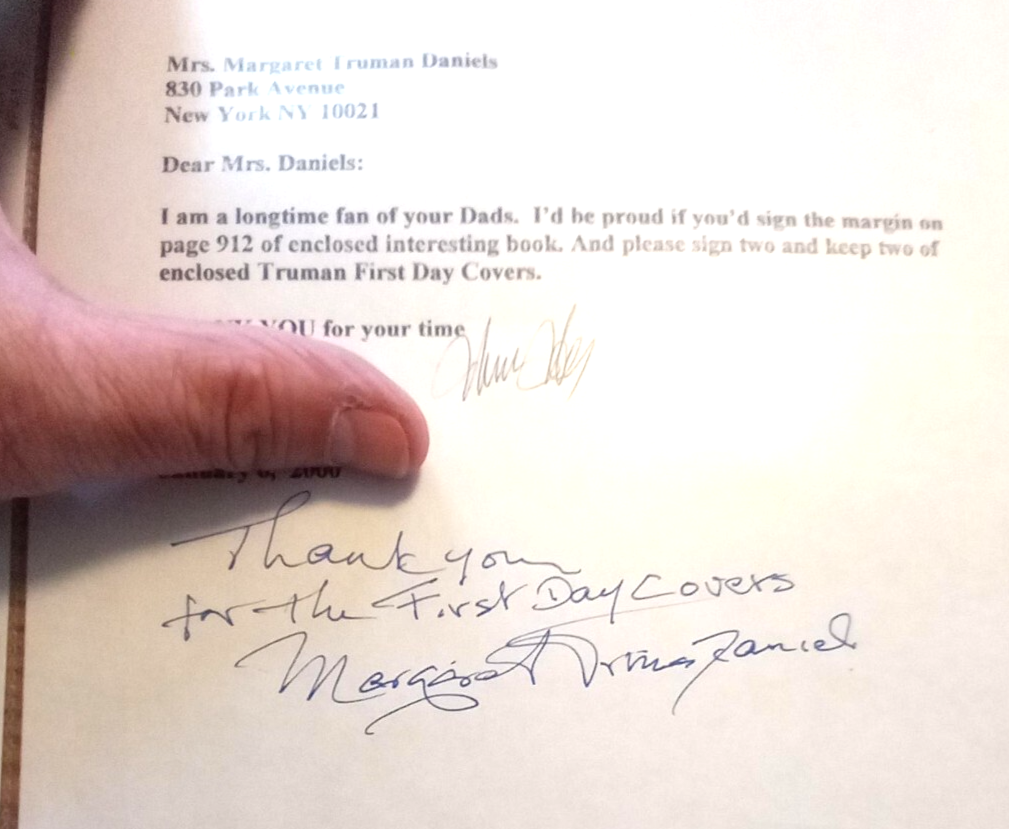 Mrs. Margaret Truman Daniels
830 Park Avenue
New York NY 10021
Dear Mrs. Daniels:
I am a longtime fan of your Dads. I'd be proud if you'd sign the margin on
page 912 of enclosed interesting book. And please sign two and keep two of
enclosed Truman First Day Covers.
YOU for your time
2000
Thank you
for the First Day Covers
Margaret Truman Daniel